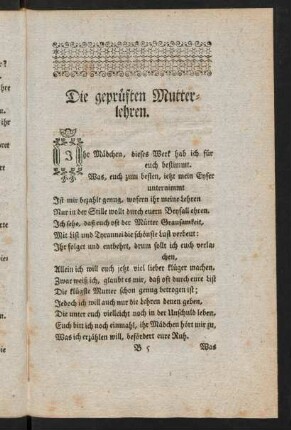 Die geprüften Mutter-
lehren.
Ihr Mädchen, dieses Werk hab ich für
euch bestimmt.
Was, euch zum besten, ietzt mein Eyfer
unternimmt
Ist mir bezahlt genug, wofern ihr meine Lehren
Nur in der Stille wollt durch euren Beyfall ehren.
Ich sehe, daß euch oft der Mütter Grausamkeit,
Mit List und Tyrannei die schönste Lust verbeut:
Ihr folget und entbehrt, drum sollt ich euch verla-
chen,
Allein ich will euch jetzt viel lieber klüger machen,
Zwar weiß ich, glaubt es mir, daß oft durch eure List
Die klügste Mutter schon genug betrogen ist;
Jedoch ich will auch nur die Lehren denen geben,
Die unter euch vielleicht noch in der Unschuld leben,
Euch bitt ich noch einmahl, ihr Mädchen hört mir zu,
Was ich erzählen will, befördert eure Ruh.
B 5 Was